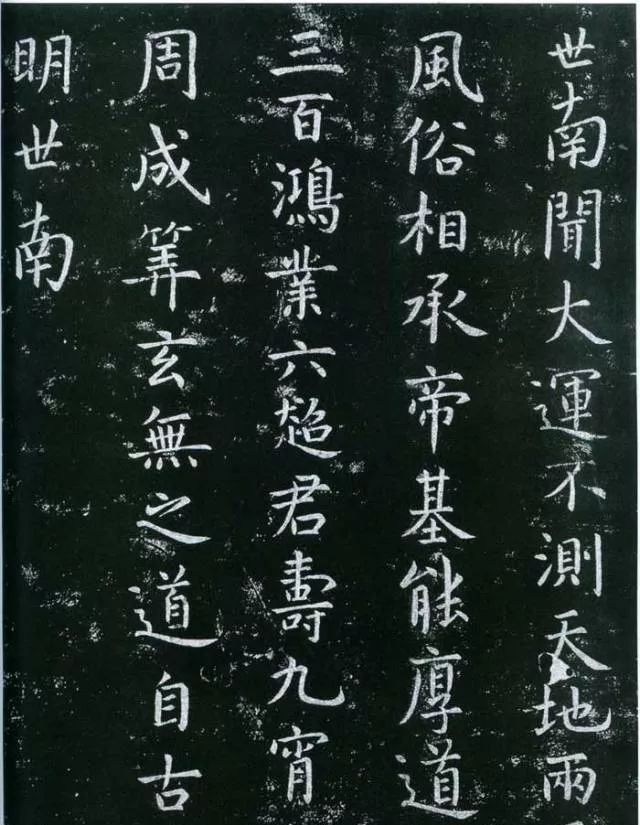 世南聞大運不測天地兩
風俗相承帝基能厚道
三百鴻業六超君壽九宵
周成筭玄無之道自古
明世南